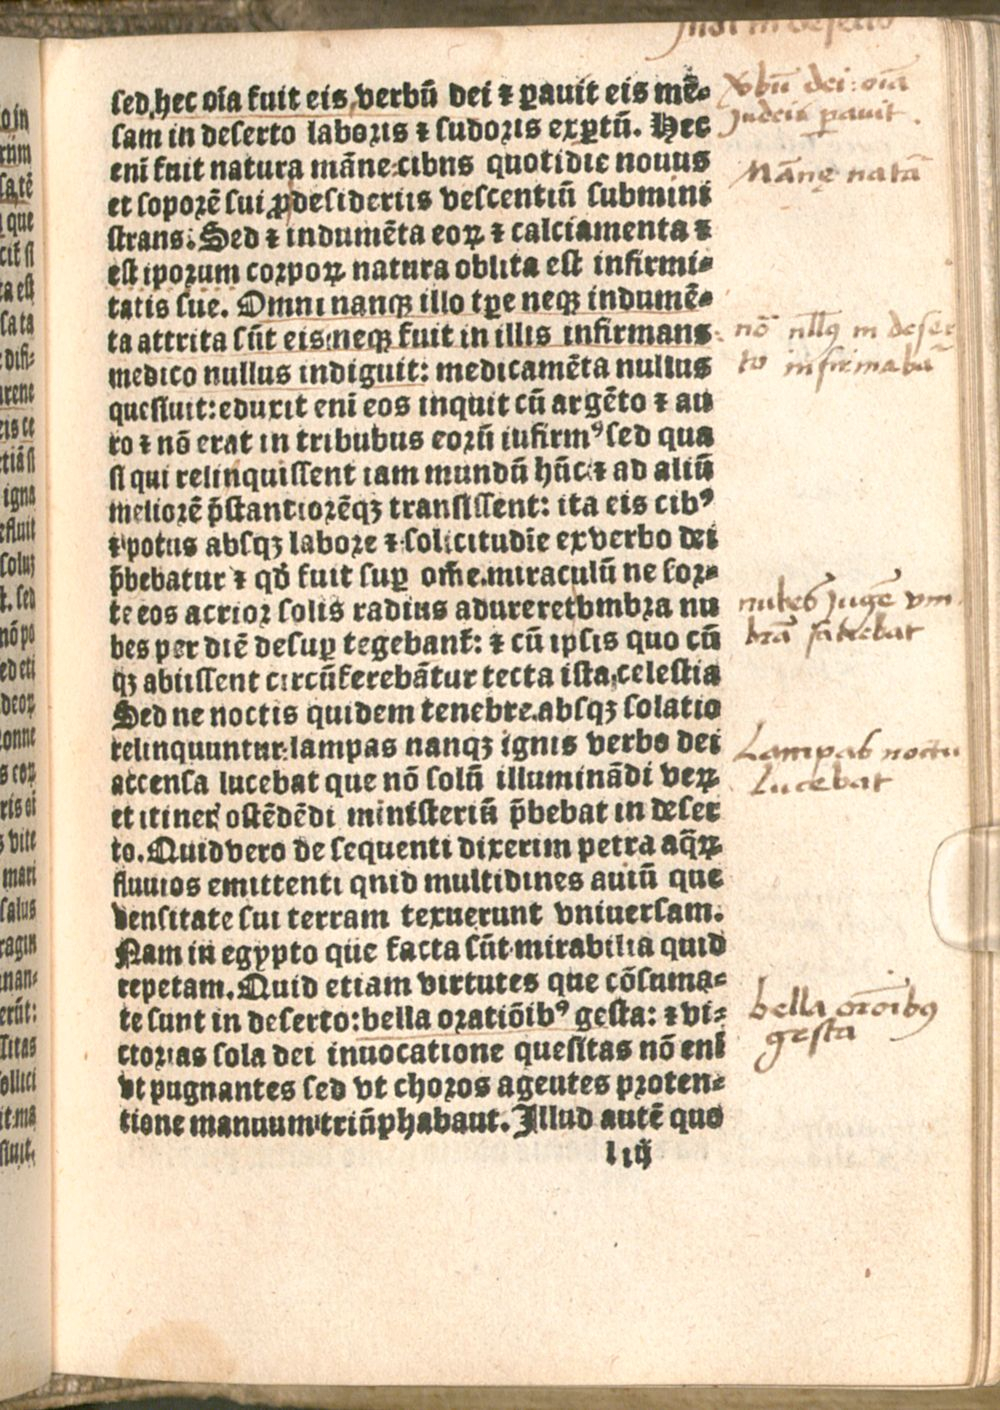 sed hec oīa fuit eis verbū dei ⁊ ꝑauit eis mē⸗
sam in deserto laboris ⁊ sudoris exꝑtū. Hec
enī fuit natura māne cibus quotidie nouus
et soporē sui ꝓ desideriis vescentiū submini
strans. Sed ⁊ indumēta eoꝝ ⁊ calciamenta ⁊
est iporum corpoꝝ natura oblita est infirmi⸗
tatis sue. Omni nanqꝫ illo tꝑe neqꝫ indumē⸗
ta attrita sūt eis: neqꝫ fuit in illis infirmans
medico nullus indiguit: medicamēta nullus
quesiuit: eduxit enī eos inquit cū argēto ⁊ au
ro ⁊ nō erat in tribubus eorū iufirmꝰ sed qua
si qui relinquissent iam mundū hūc ⁊ ad aliū
meliorē p̄stantiorēqꝫ transissent: ita eis cibꝰ
⁊ potus absqꝫ labore ⁊ solicitudīe ex verbo dei
p̄bebatur ⁊ qđ fuit suꝑ om̄e miraculū ne for⸗
te eos acrior solis radius adureret vmbra nu
bes per diē desuꝑ tegebant̄: ⁊ cū ipsis quo cū
qꝫ abiissent circūferebātur tecta ista celestia
Sed ne noctis quidem tenebre absqꝫ solatio
relinquuntur: lampas nanqꝫ ignis verbo dei
accensa lucebat que nō solū illuminādi veꝝ
et itineꝝ ostēdēdi ministeriū p̄bebat in deser
to. Quid vero de sequenti dixerim petra aq̄ꝝ
fluuios emittenti quid multidines auiū que
densitate sui terram texuerunt vniuersam.
Nam in egypto que facta sūt mirabilia quid
repetam. Quid etiam virtutes que cōsuma⸗
te sunt in deserto: bella oratiōibꝰ gesta: ⁊ vi⸗
ctorias sola dei inuocatione quesitas nō enī
vt pugnantes sed vt choros agentes proten⸗
tione manuum triūphabant. Illud autē quo
l iij
in deserto
Vbū dei oīa
Judeis ꝑauit.
Māne natā
nō nllꝰ in deser
to infirmabā
nubes Jugē vm
brā prebebat
Lampas noctu
Lucebat
bella orōnibꝰ
gesta